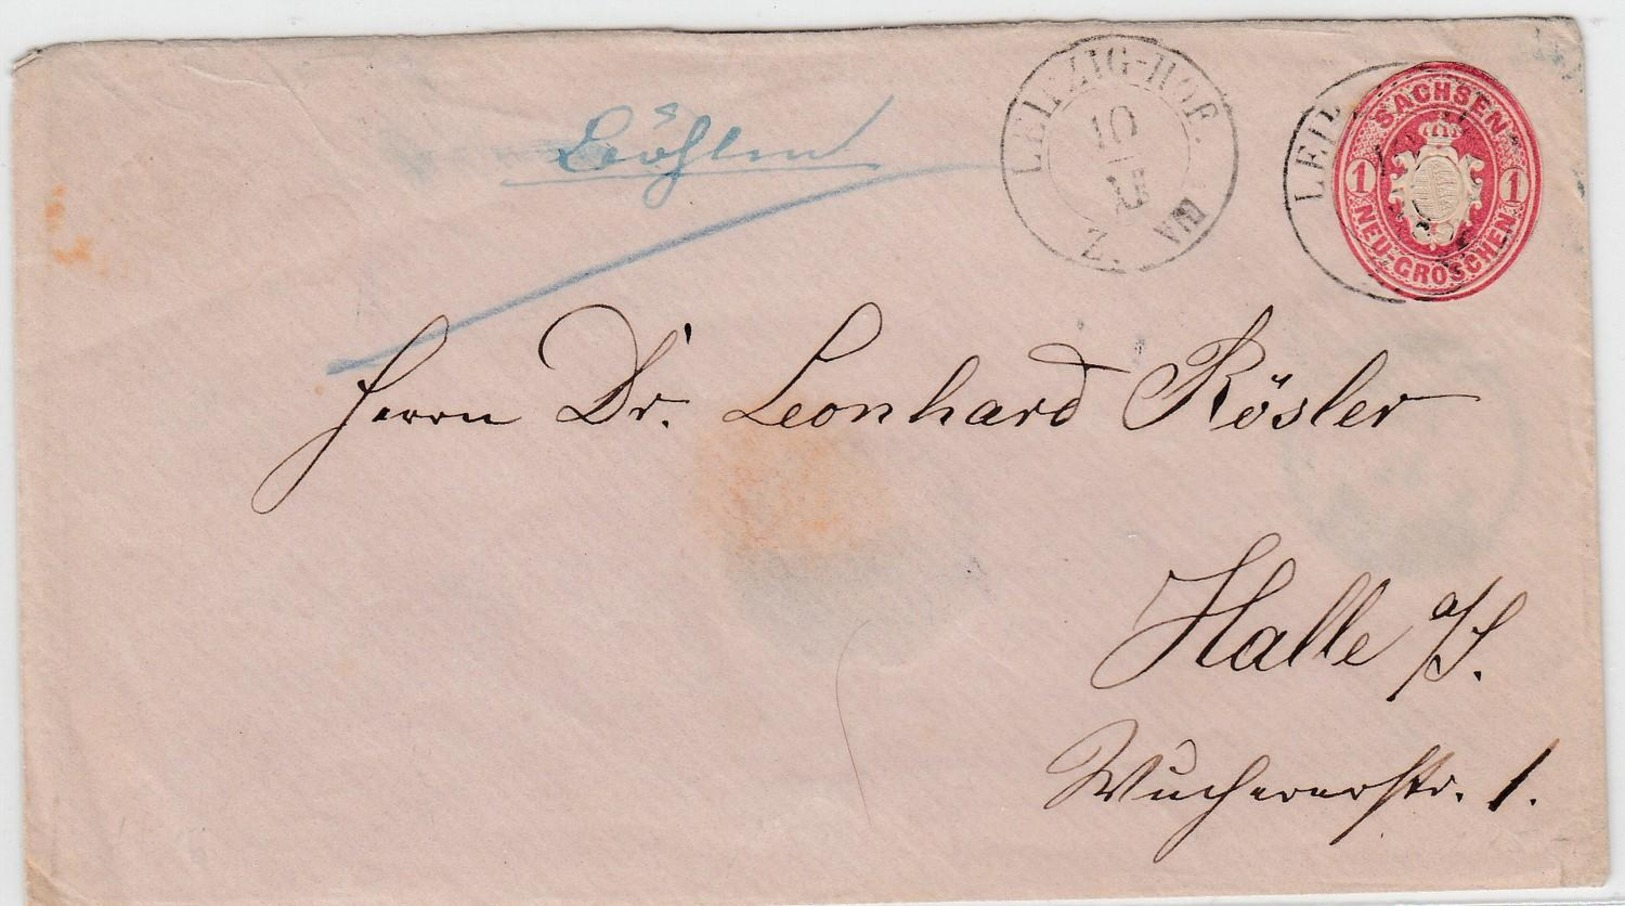 Böhlen
LEIPZIG-HOF.
10
II
Z. VIA
LEIP
SACHSEN
1 1
NEU-GROSCHEN
Herrn Dr. Leonhard Rösler
Halle a/S.
Wuchererstr. 1.